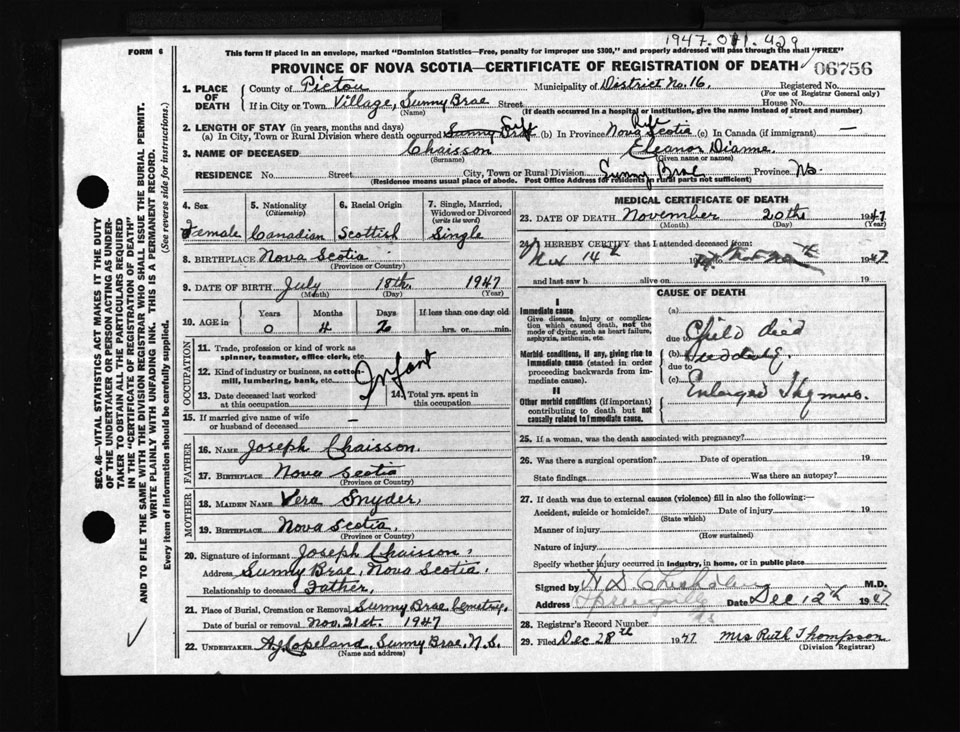 1947.011.429
FORM 6
This form if placed in an envelope, marked "Dominion Statistics—Free, penalty for improper use $300," and properly addressed will pass through the mail "FREE"
PROVINCE OF NOVA SCOTIA—CERTIFICATE OF REGISTRATION OF DEATH
06756
1. PLACE OF DEATH
County of Pictou Municipality of District No. 16. Registered No.
(For use of Registrar General only)
If in City or Town Village, Sunny Brae Street House No.
(Name) (If death occurred in a hospital or institution, give the name instead of street and number)
2. LENGTH OF STAY (in years, months and days)
(a) In City, Town or Rural Division where death occurred Sunny Brae Life (b) In Province Nova Scotia Life (c) In Canada (if immigrant) —
3. NAME OF DECEASED Chaisson Eleanor Dianne
(Surname) (Given name or names)
RESIDENCE No. Street City, Town or Rural Division Sunny Brae Province N.S.
(Residence means usual place of abode. Post Office Address for residents in rural parts not sufficient)
4. Sex
Female
5. Nationality
(Citizenship)
Canadian
6. Racial Origin
Scottish
7. Single, Married, Widowed or Divorced
(write the word)
Single
8. BIRTHPLACE Nova Scotia
(Province or Country)
9. DATE OF BIRTH July 18th 1947
(Month) (Day) (Year)
10. AGE in
Years Months Days If less than one day old
0 4 2 hrs. or min.
OCCUPATION
11. Trade, profession or kind of work as spinner, teamster, office clerk, etc.
12. Kind of industry or business, as cotton-mill, lumbering, bank, etc.
Infant
13. Date deceased last worked at this occupation
14. Total yrs. spent in this occupation
15. If married give name of wife or husband of deceased —
FATHER
16. NAME Joseph Chaisson.
17. BIRTHPLACE Nova Scotia
(Province or Country)
MOTHER
18. MAIDEN NAME Vera Snyder,
19. BIRTHPLACE Nova Scotia,
(Province or Country)
20. Signature of informant Joseph Chaisson,
Address Sunny Brae, Nova Scotia.
Relationship to deceased Father,
21. Place of Burial, Cremation or Removal Sunny Brae Cemetry.
Date of burial or removal Nov. 21st. 1947
22. UNDERTAKER A.J. Copeland, Sunny Brae, N.S.
(Name and address)
MEDICAL CERTIFICATE OF DEATH
23. DATE OF DEATH November 20th 1947
(Month) (Day) (Year)
24. I HEREBY CERTIFY that I attended deceased from:
14th 1947
and last saw h alive on 19
CAUSE OF DEATH
I
Immediate cause
Give disease, injury or complication which caused death, not the mode of dying, such as heart failure, asphyxia, asthenia, etc.
Morbid conditions, if any, giving rise to immediate cause (stated in order proceeding backwards from immediate cause).
II
Other morbid conditions (if important) contributing to death but not causally related to immediate cause.
(a)
due to Child died
(b) Suddenly.
due to
(c) Enlarged Thymus.
25. If a woman, was the death associated with pregnancy?
26. Was there a surgical operation? Date of operation 19
State findings Was there an autopsy?
27. If death was due to external causes (violence) fill in also the following:—
Accident, suicide or homicide? Date of injury 19
(State which)
Manner of injury
(How sustained)
Nature of injury
Specify whether injury occurred in industry, in home, or in public place
Signed by M.D.
Address Date Dec 12th 1947
28. Registrar's Record Number
29. Filed Dec 28th 1947 Mrs Ruth Thompson
(Division Registrar)
SEC. 46—VITAL STATISTICS ACT MAKES IT THE DUTY
OF THE UNDERTAKER OR PERSON ACTING AS UNDER-
TAKER TO OBTAIN ALL THE PARTICULARS REQUIRED
IN THE "CERTIFICATE OF REGISTRATION OF DEATH"
AND TO FILE THE SAME WITH THE DIVISION REGISTRAR WHO SHALL ISSUE THE BURIAL PERMIT.
WRITE PLAINLY WITH UNFADING INK. THIS IS A PERMANENT RECORD.
Every item of information should be carefully supplied. (See reverse side for instructions.)